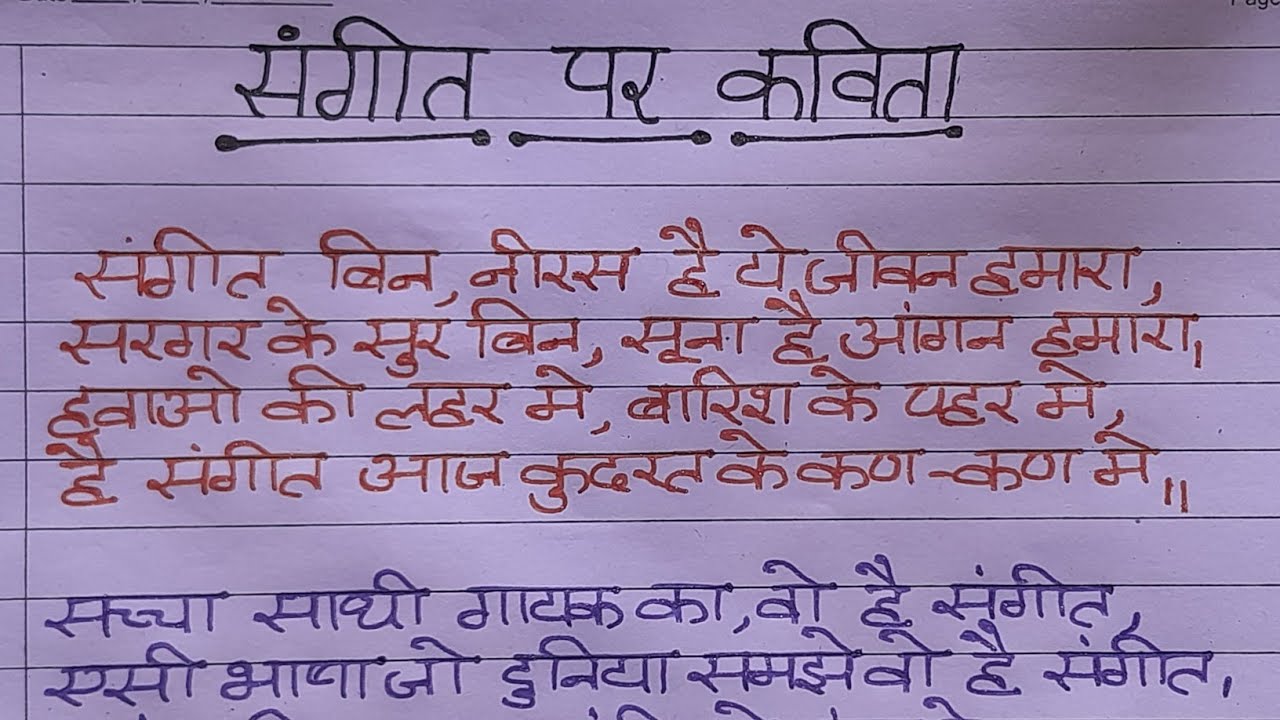 Page
संगीत पर कविता
संगीत बिन, नीरस है ये जीवन हमारा,
सरगर के सुर बिन, सूना है आंगन हमारा,
हवाओ की लहर मे, बारिश के पहर मे,
है संगीत आज कुदरत के कण-कण मे॥
सच्चा साथी गायक का, वो है संगीत,
एसी भाषा जो दुनिया समझे वो है संगीत,